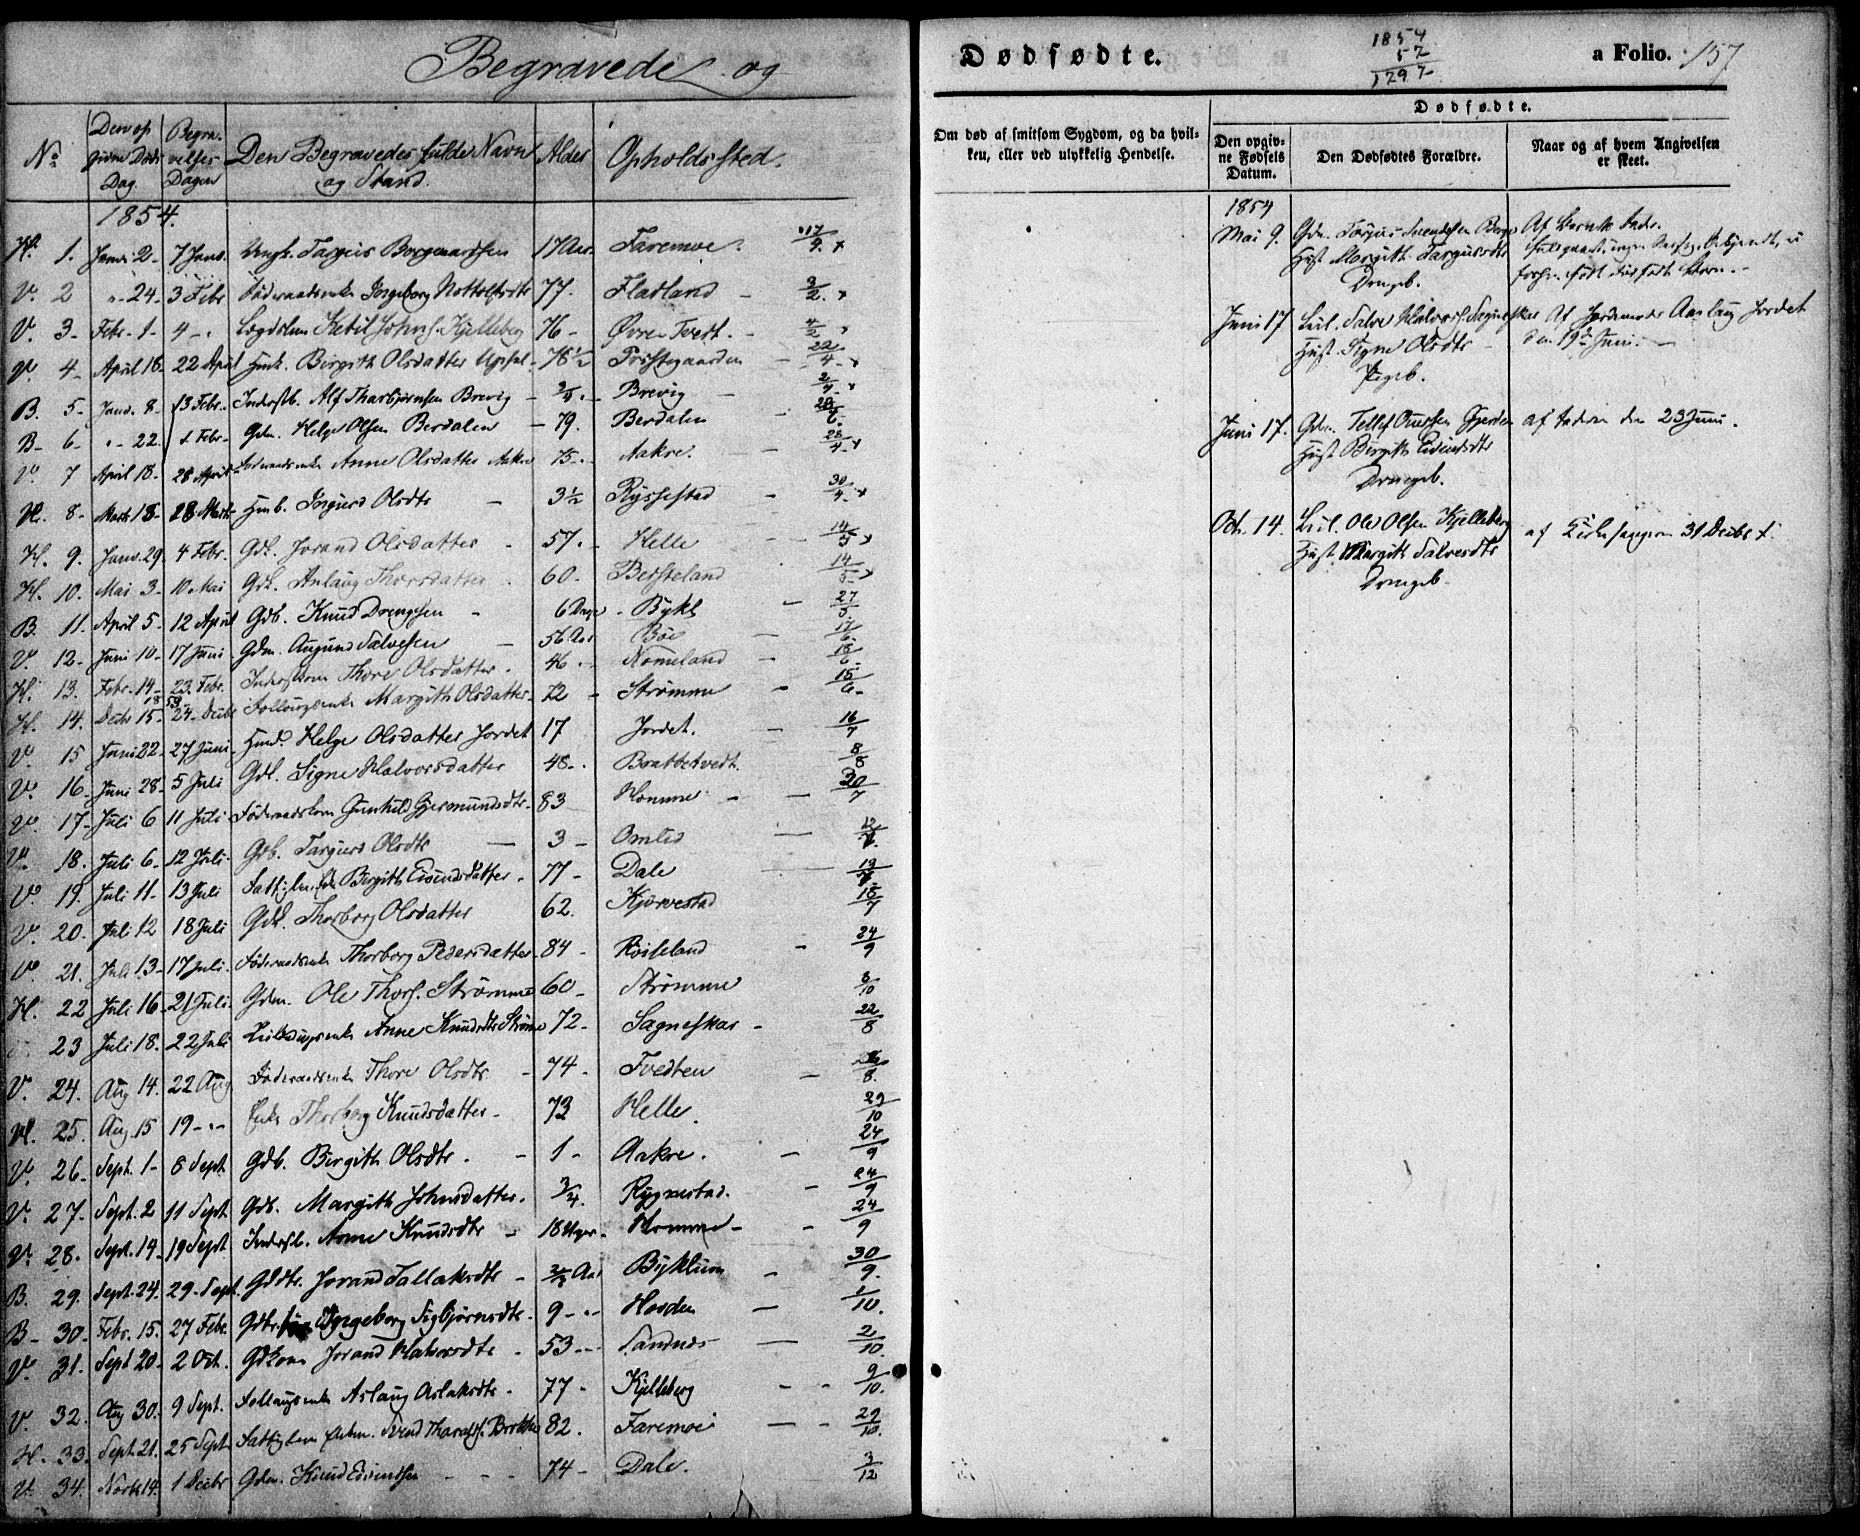 Begravede og
No
Den op
givne Døds
Dag.
Begra-
velses
Dagen
Den Begravedes fulde Navn
og Stand.
Alder
Opholdssted.
1854.
H. 1. Janr 2- 7 Janr. Ungk. Targus Borgaardsen 17 Aar. Faremoe. 17/4
V. 2 " - 24. 3 Febr Føderaadsenke Ingeborg Nottolfsdtr 77. Fladland - 3/2.
V. 3. Febr. 1- 4 - " Lægdslem Ketil Johns. Kjelleberg 76 - Øvre Tveit. - 4/2
V. 4- April 16- 22 April Birgith Olsdatter Upstal 76 1/2 Præstegaarden - 22/4
B. 5- Janr. 8- 13 Febr- Inderstb. Alf Thorbjørnsen Brevig - Brevig -
B- 6- " - 22. Febr- Gdm. Helge Olsen Berdalen - 79. Berdalen
V. 7 April 18- 28 April Føderaadsenke Anne Olsdatter Aakre 75 - Aakre. - 28/4
H. 8- Marts 18- 28 Marts Ingierd Olsdtr - 3 1/2 Ryssestad - 30/4
H. 9. Janr. 29. 4 Febr. Gdk. Jorand Olsdatter - 57. - Helle - 14/5
H. 10. Mai 3- 10 Mai Gdk. Anlaug Thorsdatter . 60. Besteland 14/5
B. 11. April 5- 12 April Gdb. Knud Drengsen - 6 Dage - Bykl - 27/5.
V. 12- Juni 10- 17 Juni - Gdm. Augund Salvesen - 56 Aar Bøe - 17/6
H. 13. Febr. 14- 23. Febr. Thore Olsdatter. 46. - Nomeland - 18/6
H. 14. Decbr 15- 24- Decbr Margith Olsdatter- 72 - Strømme - 15/6-
V. 15 Juni 22- 27 Juni - Helge Olsdatter Jordet 17 Jordet. - 16/7
V. 16- Juni 28- 5 Juli Gdk. Signe Halvorsdatter 48- . Brottetvedt. 8/8
V. 17- Juli 6 11 Juli - Føderaadskone Gunhild Gjermundsdtr. 83 Homme - - 30/7
V. 18. Juli 6- 12 Juli- Gdb. Targierd Olsdtr - 3 - Omlid -
V. 19. Juli 11- 13 Juli Birgith Eivindsdatter. 77 - Dale -
V. 20. Juli 12 18 Juli Gdk. Thorborg Olsdatter 62. Kjørvestad 18/7
V. 21. Juli 13- 17 Juli. Føderaadsenke Thorborg Pedersdatter. 84 - Røiseland - 24/9
H. 22 Juli 16- 21 Juli. Gdm. Ole Thors. Strømme 60 - Strømme 8/10
23 Juli 18. 22 Juli Anne Knudsdtr Strøme 72- Sagneskar - 22/8
V. 24. Aug 14. 22 Aug Føderaadsenke Thore Olsdtr. - 74 - Tvedten -
H. 25. Aug. 15 19 - " - Enke Thorborg Knudsdatter- 73 Helle. 29/10
V. 26. Sept. 1- 8 Sept Gdb. Birgith Olsdtr. - 1 - Aakre. - 24/9
V. 27. Sept. 2 11 Sept Gdb. Margith Johnsdatter. 3/4. Rygnestad. - 24/9
V. 28. Sept. 14- 19 Sept Inderstb. Anne Knudsdtr - 18 Uger - Homme - - 24/9
B. 29. Sept. 24. 29- Sept. Gddtr. Jorand Tallaksdtr - Aar Byklum - 30/9.
B- 30. Febr. 15. 27 Febr. Gdtr. Ingeborg Sigbjørnsdtr. 9 - " - Hovden - 1/10.
V. 31. Sept 20- 2 Oct. Gdkone Jorand Halvorsdtr - 53 - - Sandnes - 2/10.
V. 32. Aug 30. 9 Sept. Aslaug Aslaksdtr - 77 - Kjelleberg - - 9/10.
H. 33. Sept. 21. 25 Sept. Svend Tharalds. Brokke 82. Faremoe - - 29/10.
V. 34. Novbr 14. 1 Decbr Gdm. Knud Eivindsen - - - 74 - Dale. 3/12
Dødfødte.
1854
57
1797
a Folio. 157
Om død af smitsom Sygdom, og da hvil-
ken, eller ved ulykkelig Hendelse.
Dødfødte.
Den opgiv-
ne Fødsels
Datum.
Den Dødfødtes Forældre.
Naar og af hvem Angivelsen
er skeet.
1854
Mai 9. Gdm. Targus Svendsen
Hust. Margith Targusdtr
Drengeb.
Af Barnets Fader.
Juni 17 Leil. Salve Halvors. Sagneskar
Hust. Signe Olsdtr -
Pigeb.
Af Jordemoder Aaslaug Jordet
den 19de Juni. -
Juni 17. Gdm. Tellef Gjerden
Hust Birgith Eivindsdtr
Drengeb.
af Faderen den 23 Juni.
Octr. 14. Leil. Ole Olsen Kjelleberg
Hust. Margith Salvesdtr
Drengeb.
af Kirkesangeren 31 Decbr